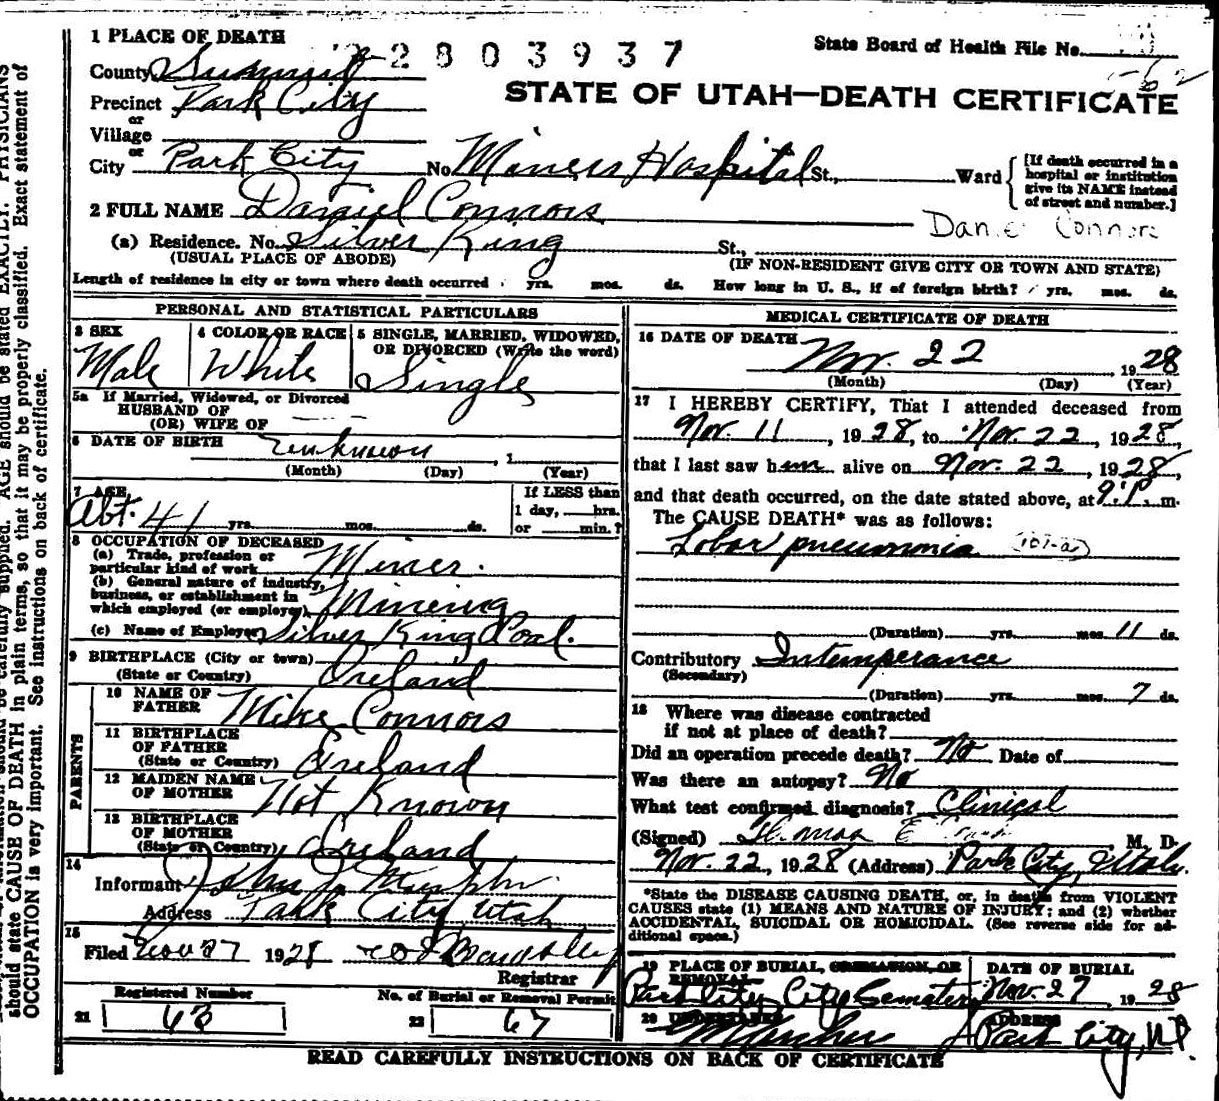 1 PLACE OF DEATH
2803937
State Board of Health File No.
562
County Summit
STATE OF UTAH—DEATH CERTIFICATE
Precinct Park City
or
Village
or
City Park City No. Miners Hospital St., Ward
[If death occurred in a
hospital or institution
give its NAME instead
of street and number.]
2 FULL NAME Daniel Connors
Daniel Connors
(a) Residence. No. Silver King St.,
(USUAL PLACE OF ABODE) (IF NON-RESIDENT GIVE CITY OR TOWN AND STATE)
Length of residence in city or town where death occurred yrs. mos. ds. How long in U. S., if of foreign birth? yrs. mos. ds.
PERSONAL AND STATISTICAL PARTICULARS
3 SEX 4 COLOR OR RACE 5 SINGLE, MARRIED, WIDOWED,
OR DIVORCED (Write the word)
Male White Single
5a If Married, Widowed, or Divorced
HUSBAND OF
(OR) WIFE OF
6 DATE OF BIRTH unknown , 1
(Month) (Day) (Year)
7 AGE If LESS than
1 day, hrs.
Abt. 41 yrs. mos. ds. or min.?
8 OCCUPATION OF DECEASED
(a) Trade, profession or
particular kind of work Miner.
(b) General nature of industry,
business, or establishment in
which employed (or employer) Mining
(c) Name of Employer Silver King Coal.
9 BIRTHPLACE (City or town)
(State or Country) Ireland
PARENTS
10 NAME OF
FATHER Mike Connors
11 BIRTHPLACE
OF FATHER
(State or Country) Ireland
12 MAIDEN NAME
OF MOTHER Not Known
13 BIRTHPLACE
OF MOTHER
(State or Country) Ireland
14
Informant John J. Murphy
Address Park City Utah
15
Filed Nov 27 1928
Registrar
Registered Number No. of Burial or Removal Permit
21 63 22 67
MEDICAL CERTIFICATE OF DEATH
16 DATE OF DEATH
Nov. 22 , 1928
(Month) (Day) (Year)
17 I HEREBY CERTIFY, That I attended deceased from
Nov. 11 , 1928, to Nov. 22 , 1928,
that I last saw him alive on Nov. 22 , 1928,
and that death occurred, on the date stated above, at 9 P. m.
The CAUSE DEATH* was as follows:
Lobar pneumonia
(Duration) yrs. mos. 11 ds.
Contributory Intemperance
(Secondary)
(Duration) yrs. mos. 7 ds.
18 Where was disease contracted
if not at place of death?
Did an operation precede death? No Date of
Was there an autopsy? No
What test confirmed diagnosis? Clinical
(Signed) Thomas E M. D.
Nov. 22, 1928 (Address) Park City, Utah.
*State the DISEASE CAUSING DEATH, or, in deaths from VIOLENT
CAUSES state (1) MEANS AND NATURE OF INJURY; and (2) whether
ACCIDENTAL, SUICIDAL OR HOMICIDAL. (See reverse side for ad-
ditional space.)
19 PLACE OF BURIAL, CREMATION, OR
REMOVAL DATE OF BURIAL
Park City City Cemetery Nov. 27 1928
20 UNDERTAKER ADDRESS
Park City, Ut.
READ CAREFULLY INSTRUCTIONS ON BACK OF CERTIFICATE
should state CAUSE OF DEATH in plain terms, so that it may be properly classified. Exact statement of
OCCUPATION is very important. See instructions on back of certificate.